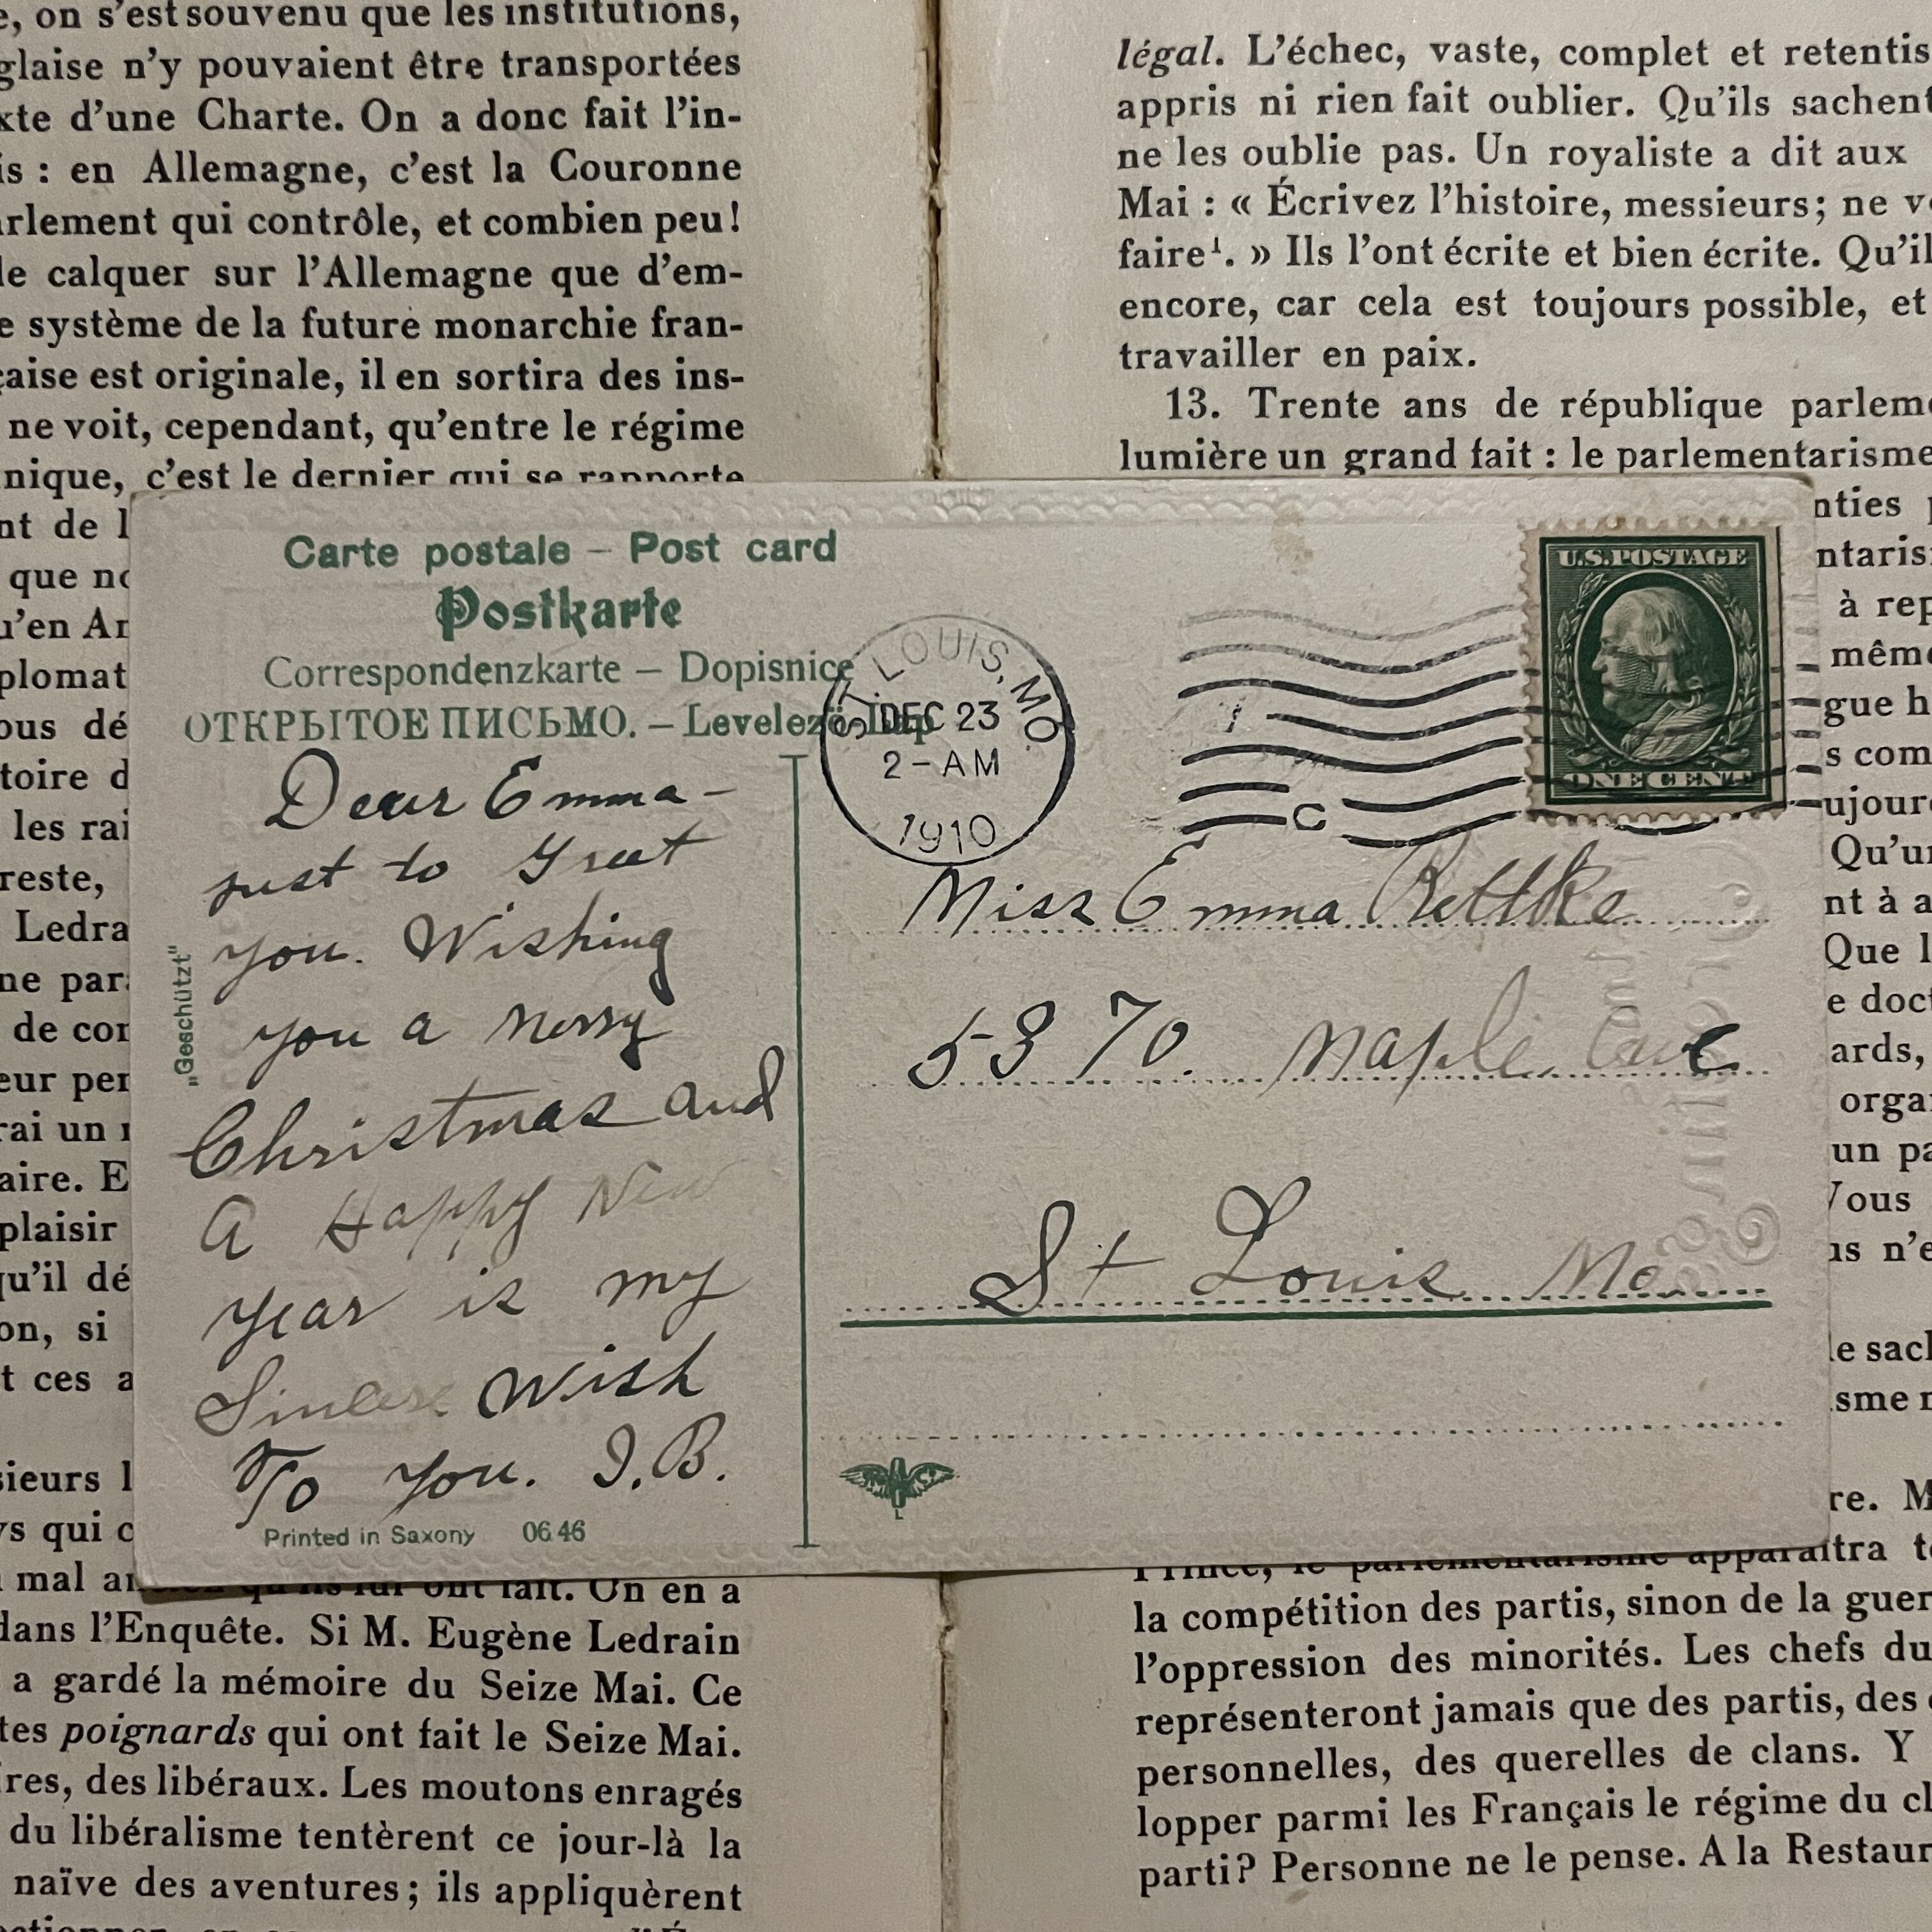 e, on s'est souvenu que les institutions,
glaise n'y pouvaient être transportées
xte d'une Charte. On a donc fait l'in-
is : en Allemagne, c'est la Couronne
arlement qui contrôle, et combien peu!
le calquer sur l'Allemagne que d'em-
e système de la future monarchie fran-
çaise est originale, il en sortira des ins-
ne voit, cependant, qu'entre le régime
nique, c'est le dernier qui se rapporte
nt de l
que no
u'en Ar
plomat
ous dé
toire d
les rai
reste,
Ledra
ne par
de cor
eur per
rai un
aire. E
plaisir
qu'il dé
on, si
t ces a
sieurs l
ys qui c
mal an qu'ils lui ont fait. On en a
dans l'Enquête. Si M. Eugène Ledrain
a gardé la mémoire du Seize Mai. Ce
tes poignards qui ont fait le Seize Mai.
ires, des libéraux. Les moutons enragés
du libéralisme tentèrent ce jour-là la
naïve des aventures; ils appliquèrent
légal. L'échec, vaste, complet et retentis
appris ni rien fait oublier. Qu'ils sachent
ne les oublie pas. Un royaliste a dit aux
Mai : « Écrivez l'histoire, messieurs; ne v
faire¹. » Ils l'ont écrite et bien écrite. Qu'il
encore, car cela est toujours possible, et
travailler en paix.
13. Trente ans de république parleme
lumière un grand fait : le parlementarisme
nties p
ntaris
à rep
même
gue h
s com
ujour
Qu'un
nt à a
Que l
e doct
ards,
organ
un pa
Vous
us n'e
le sach
sme n
re. M
Prince, le parlementarisme apparaîtra t
la compétition des partis, sinon de la guer
l'oppression des minorités. Les chefs du
représenteront jamais que des partis, des
personnelles, des querelles de clans. Y
lopper parmi les Français le régime du cl
parti? Personne ne le pense. A la Restaur
Carte postale – Post card
Postkarte
Correspondenzkarte – Dopisnice
ОТКРЫТОЕ ПИСЬМО. – Levelező-Lap
"Geschützt"
Dear Emma -
just to Greet
you. Wishing
you a merry
Christmas and
A Happy New
year is my
Sincere Wish
To you. I.B.
Printed in Saxony 0646
ST. LOUIS, MO.
DEC 23
2-AM
1910
C
U.S. POSTAGE
ONE CENT
Miss Emma Rettke
5370. Maple Ave
St Louis Mo.
L